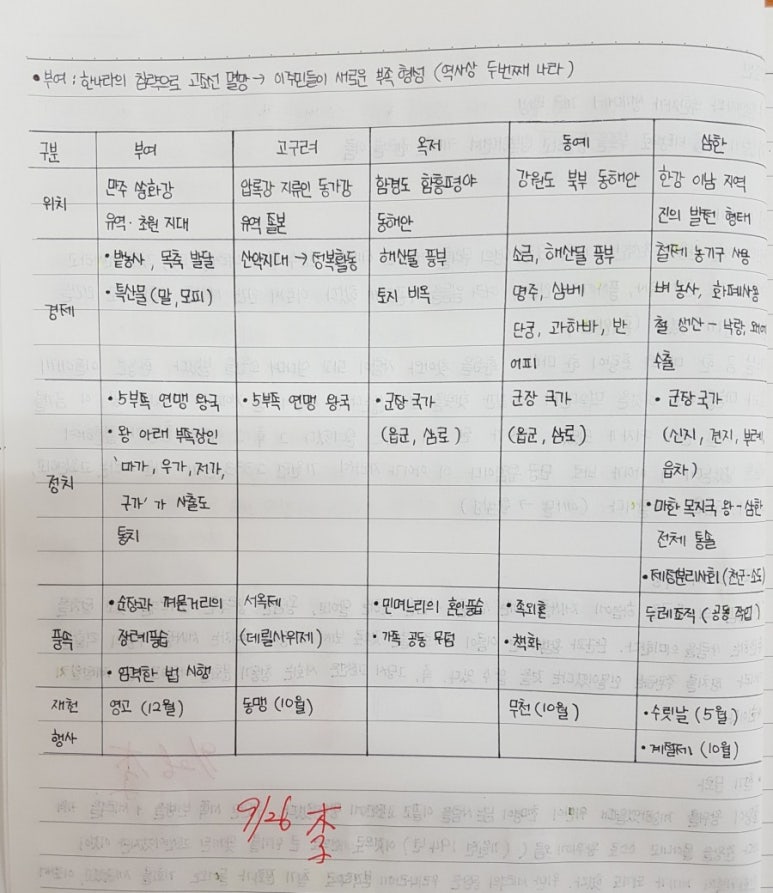 • 부여 : 한나라의 침략으로 고조선 멸망 → 이주민들이 새로운 부족 형성 (역사상 두번째 나라)
구분 부여 고구려 옥저 동예 삼한
위치
만주 쑹화강
유역·초원 지대
압록강 지류인 동가강
유역 졸본
함경도 함흥평야
동해안
강원도 북부 동해안
한강 이남 지역
진의 발전 형태
경제
• 밭농사, 목축 발달
• 특산물 (말, 모피)
산악지대 → 정복활동
해산물 풍부
토지 비옥
소금, 해산물 풍부
명주, 삼베
단궁, 과하바, 반
어피
철제 농기구 사용
벼 농사, 화폐사용
철 생산 - 낙랑, 왜에
수출
정치
• 5부족 연맹 왕국
• 왕 아래 부족장인
'마가, 우가, 저가,
구가' 가 사출도
통치
• 5부족 연맹 왕국
• 군장 국가
(읍군, 삼로)
군장 국가
(읍군, 삼로)
• 군장 국가
(신지, 견지, 부례,
읍차)
• 마한 목지국 왕 - 삼한
전체 통솔
• 제정분리사회 (천군-소도)
풍속
• 순장과 껴묻거리의
장례풍습
• 엄격한 법 시행
서옥제
(데릴사위제)
• 민며느리의 혼인풍습
• 가족 공동 무덤
• 족외혼
• 책화
두레조직 (공동 작업)
재천
행사
영고 (12월)
동맹 (10월)
무천 (10월)
• 수릿날 (5월)
• 계절제 (10월)
9/26 李